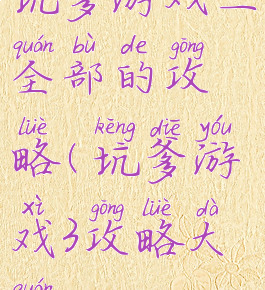 坑爹游戏三
quán bù de gōng
全部的攻
lüè kēng diē yóu
略(坑爹游
xì gōng lüè dà
戏3攻略大
quán